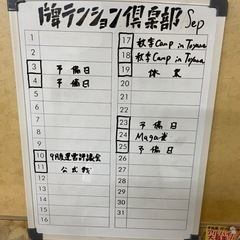 牌テンション倶楽部 Sep
1
2
3 予備日
4 予備日
5
6
7
8
9
10 9月度運営評議会
11 公式戦
12
13
14
15
16
17 秋季Camp in Toyama
18 秋季Camp in Toyama
19 休業
20
21
22
23 予備日
24 Maga杯
25 予備日
26
27
28
29
30
31